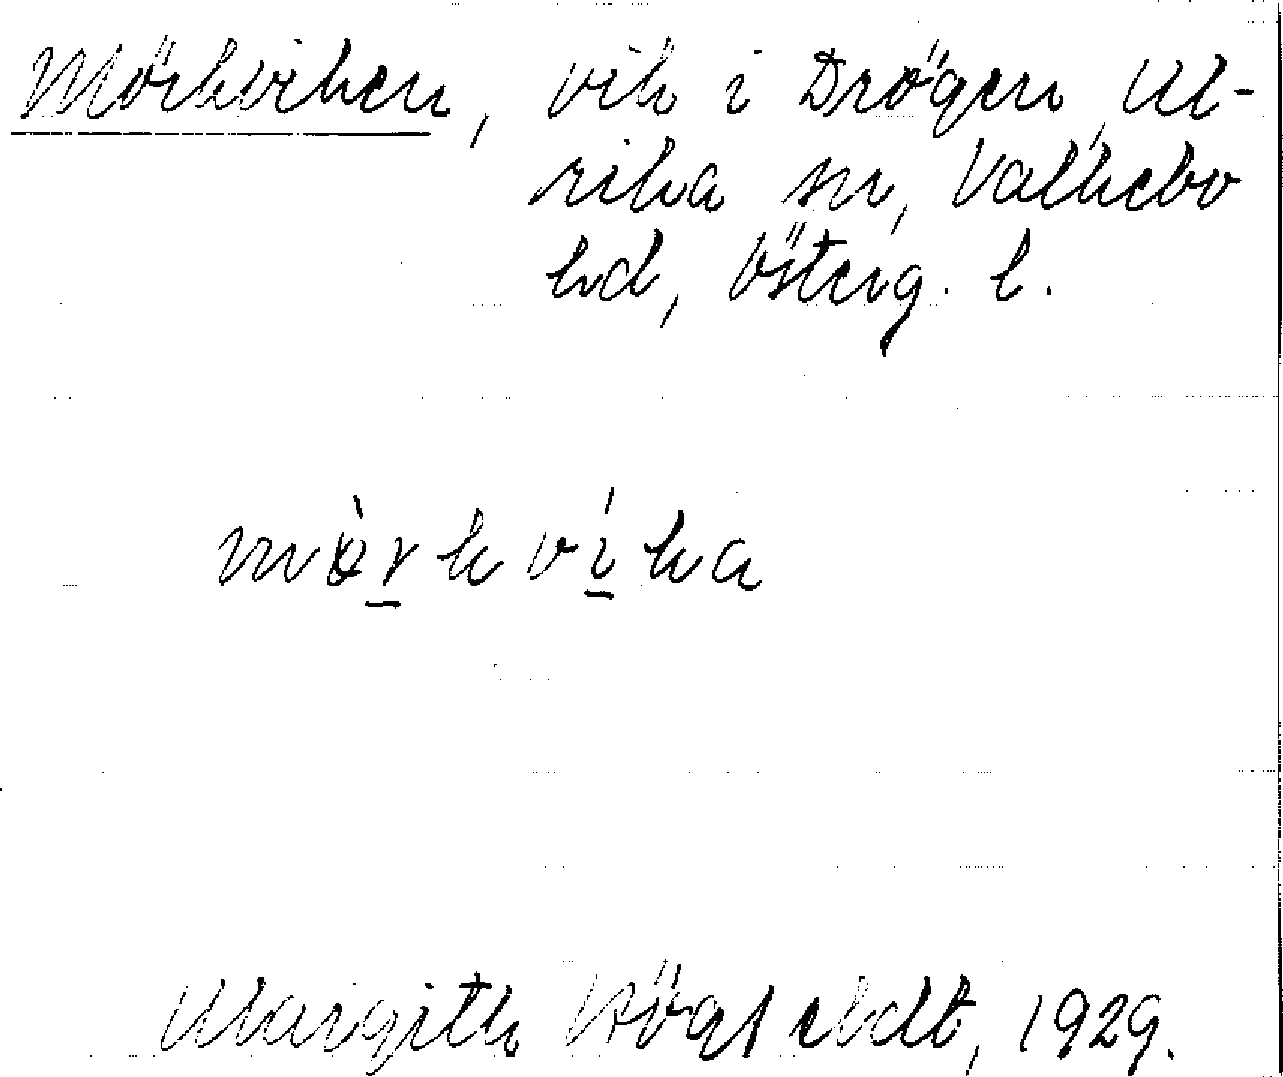 Mörkviken, vik i Drögen, Ul-
rika sn, Valkebo
hd, Österg. l.
mö̀rkvíka
Margith Högstedt, 1929.